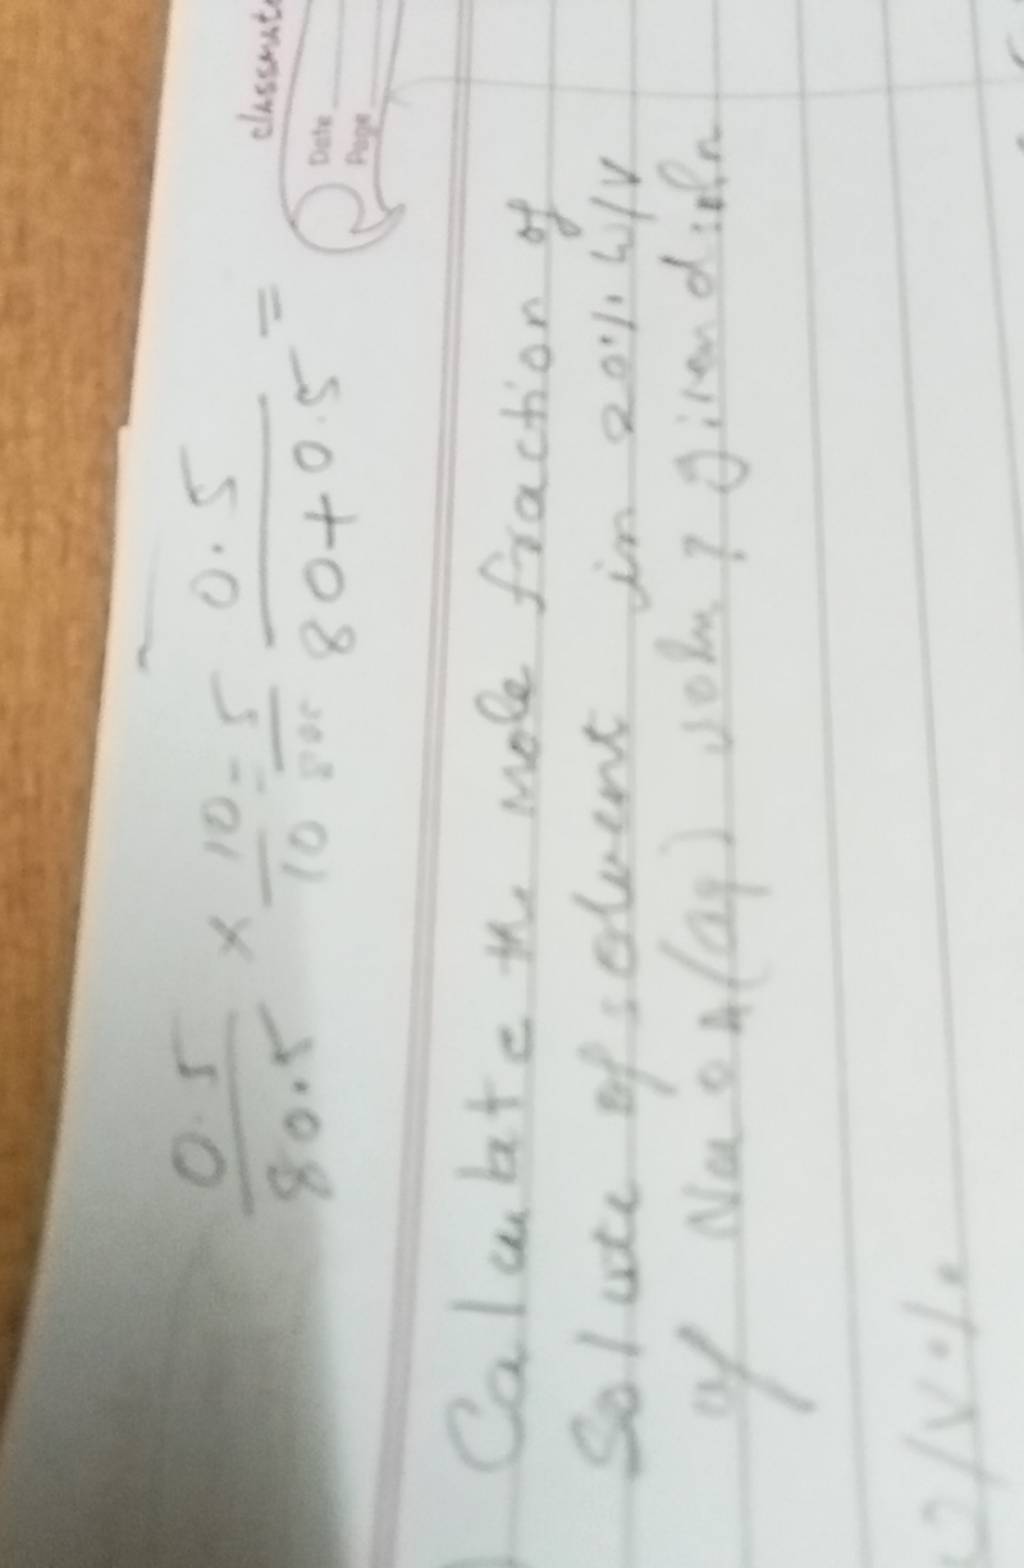 classmate
Date
Page
0.5/80.5 × 10/10 = 5/805 0.5/80+0.5 =
Calculate the mole fraction of
Solute of solvent in 20% W/V
of NaOH(aq) soln? given dsoln
W/V%